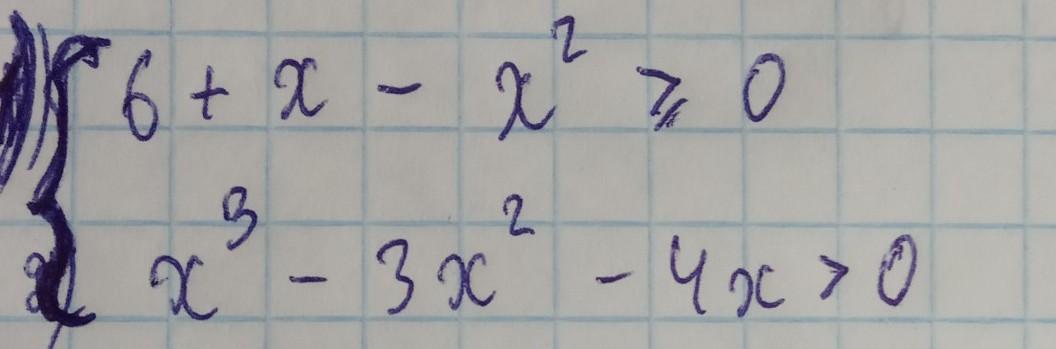 6 + x - x² ⩾ 0
x³ - 3x² - 4x > 0